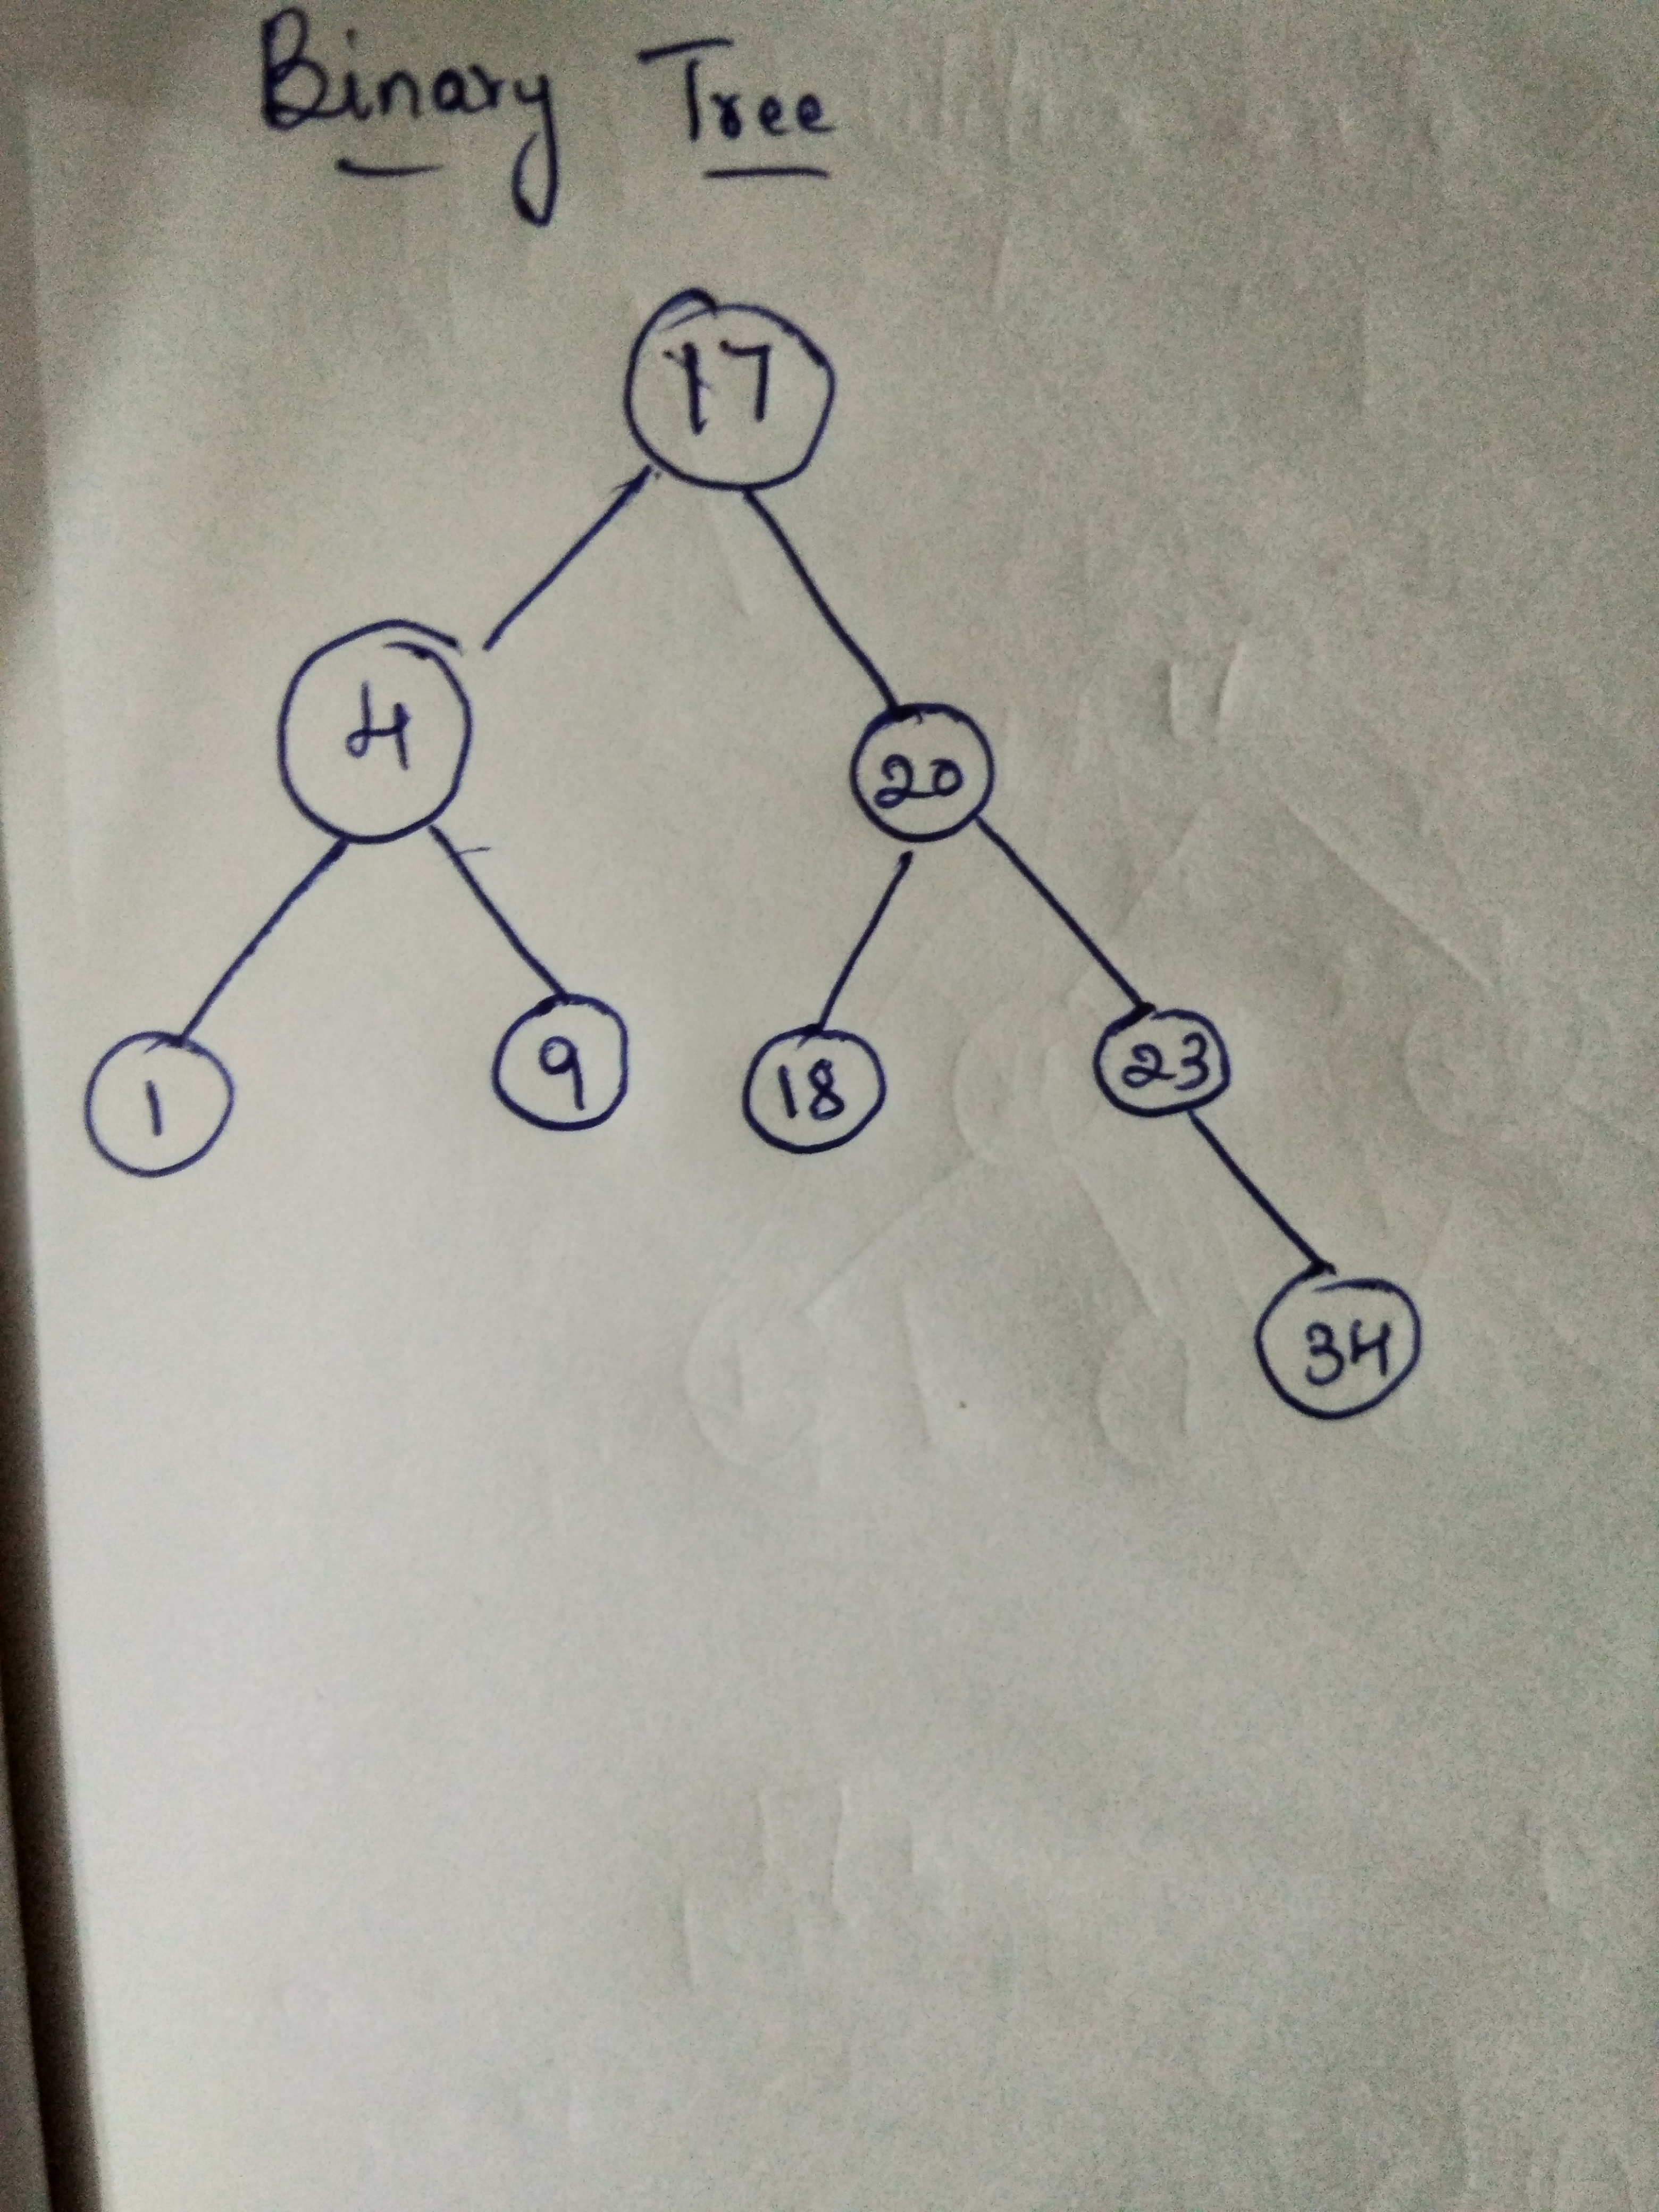 Binary Tree
17
4
20
1 9 18 23
34